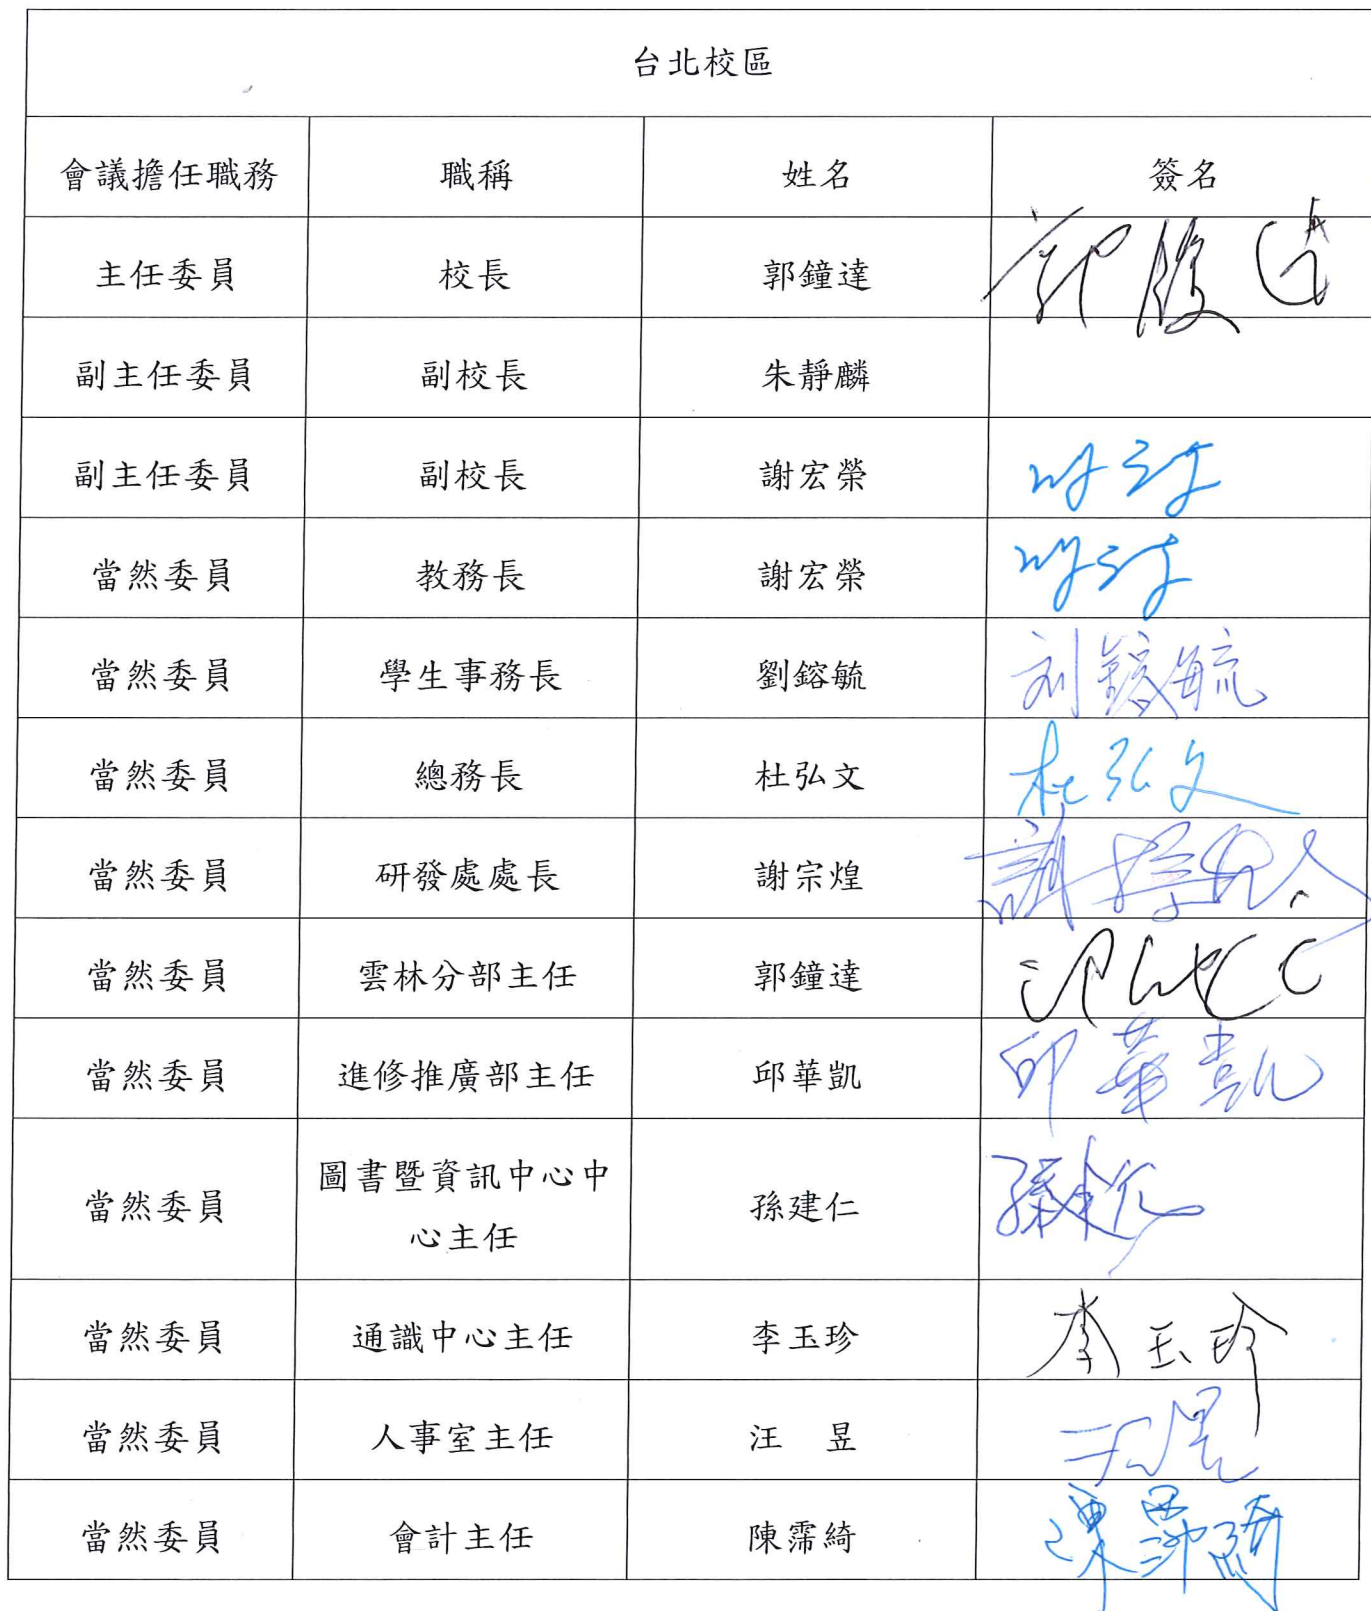 台北校區
會議擔任職務 職稱 姓名 簽名
主任委員 校長 郭鐘達
副主任委員 副校長 朱靜麟
副主任委員 副校長 謝宏榮
當然委員 教務長 謝宏榮
當然委員 學生事務長 劉鎔毓 刘鎔毓
當然委員 總務長 杜弘文 杜弘文
當然委員 研發處處長 謝宗煌
當然委員 雲林分部主任 郭鐘達
當然委員 進修推廣部主任 邱華凱 邱華凱
當然委員 圖書暨資訊中心中
心主任 孫建仁 孫建仁
當然委員 通識中心主任 李玉珍 李玉珍
當然委員 人事室主任 汪 昱 汪昱
當然委員 會計主任 陳霈綺 陳霈綺